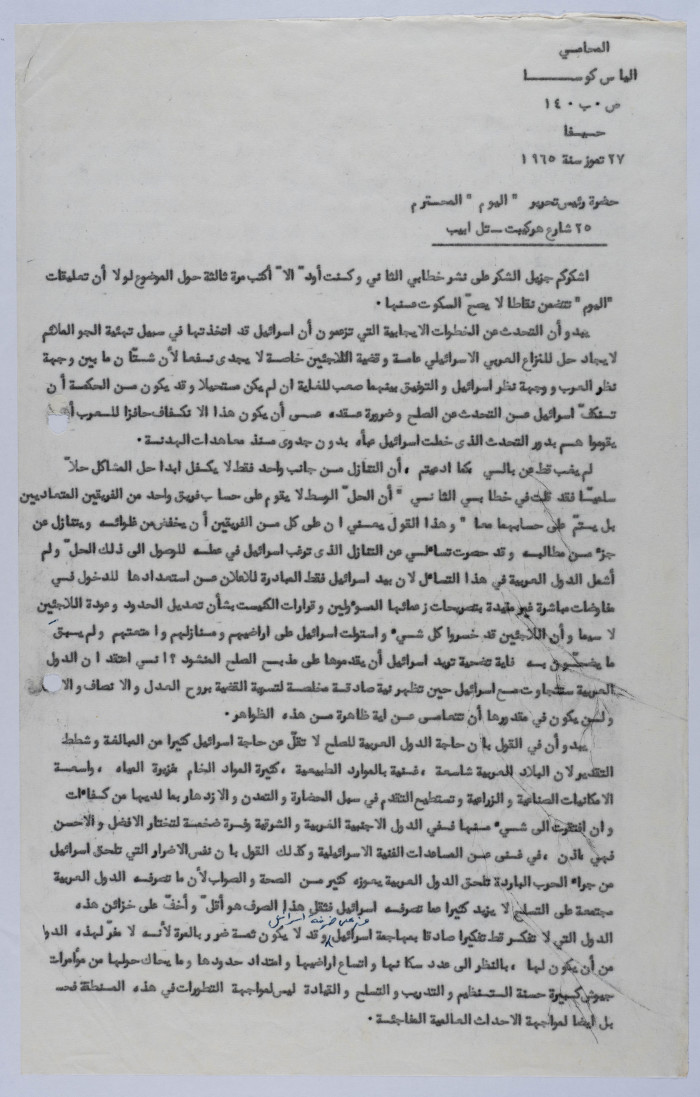 المحامي
الياس كوسا
ص٠ب ١٤٠
حيفا
٢٧ تموز سنة ١٩٦٥
حضرة رئيس تحرير " اليوم " المحترم
٢٥ شارع هركيبت ـ تل ابيب
اشكركم جزيل الشكر على نشر خطابي الثاني وكنت أودّ الاّ أكتب مرة ثالثة حول الموضوع لولا أن تعليقات
"اليوم" تتضمن نقاطا لا يصحّ السكوت عنها ٠
يبدو أن التحدث عن الخطوات الايجابية التي تزعمون أن اسرائيل قد اتخذتها في سبيل تهيئة الجو الملائم
لايجاد حل للنزاع العربي الاسرائيلي عامة وقضية اللاجئين خاصة لا يجدى نفعا لأن شتّان ما بين وجهة
نظر العرب ووجهة نظر اسرائيل والتوفيق بينهما صعب للغاية ان لم يكن مستحيلا وقد يكون من الحكمة أن
تستنكفّ اسرائيل عن التحدث عن الصلح وضرورة عقده عسى أن يكون هذا الانكفاف حافزا للعرب
يقوموا هم بدور التحدث الذى حملت اسرائيل عبأه بدون جدوى منذ معاهدات الهدنة ٠
لم يغب قط عن بالي ، كما ادعيتم ، أن التنازل من جانب واحد فقط لا يكفل ابدا حل المشاكل حلاّ
سلميّا فقد قلت في خطابي الثاني " أن الحلّ الوسط لا يقوم على حساب فريق واحد من الفريقين المتعاديين
بل يستمّ على حسابهما معا " وهذا القول يعني ان على كل من الفريقين أن يخفض من غلوائه ويتنازل عن
جزء من مطالبه وقد حصرت تساؤلي عن التنازل الذى ترغب اسرائيل في عمله للوصول الى ذلك الحلّ ولم
أشمل الدول العربية في هذا التساؤل لان بيد اسرائيل فقط المبادرة للاعلان عن استعدادها للدخول في
مفاوضات مباشرة غير مقيدة بتصريحات زعمائها المسؤولين وقرارات الكنيست بشأن تعديل الحدود وعودة اللاجئين
لا سيما وأن اللاجئين قد خسروا كل شيء واستولت اسرائيل على اراضيهم ومنازلهم وامتعتهم ولم يبق
ما يضحّون به فاية تضحية تريد اسرائيل أن يقدموها على مذبح الصلح المنشود ؟ انني اعتقد ان الدول
العربية ستتجاوب مع اسرائيل حين تظهر نية صادقة مخلصة لتسوية القضية بروح العدل والانصاف
ولن يكون في مقدورها أن تتعامى عن اية ظاهرة من هذه الظواهر ٠
يبدو أن في القول بان حاجة الدول العربية للصلح لا تقلّ عن حاجة اسرائيل كثيرا من المبالغة وشطط
التقدير لان البلاد العربية شاسعة ، غنية بالموارد الطبيعية ، كثيرة المواد الخام غزيرة المياه ، واسعة
الامكانيات الصناعية والزراعية وتستطيع التقدم في سبل الحضارة والتمدن والازدهار بما لديها من كفاءات
وان افتقرت الى شيء منها ففي الدول الاجنبية الغربية والشرقية وفرة ضخمة لتختار الافضل والاحسن
فهي ، اذن ، في غنى عن المساعدات الفنية الاسرائيلية وكذلك القول بان نفس الاضرار التي تلحق اسرائيل
من جراء الحرب الباردة تلحق الدول العربية يعوزه كثير من الصحة والصواب لأن ما تصرفه الدول العربية
مجتمعة على التسلح لا يزيد كثيرا عما تصرفه اسرائيل فثقل هذا الصرف هو أقلّ وأخفّ على خزائن هذه
الدول التي لا تفكر قط تفكيرا صادقا بمهاجمة اسرائيل وقد لا يكون ثمة ضرر بالمرة لأنه لا مفرّ لهذه
من أن يكون لها ، بالنظر الى عدد سكانها واتساع اراضيها وامتداد حدودها وما يحاك حولها من مؤامرات
جيوش كبيرة حسنة التنظيم والتدريب والتسلح والقيادة ليس لمواجهة التطورات في هذه المنطقة
بل ايضا لمواجهة الاحداث العالمية المفاجئة ٠